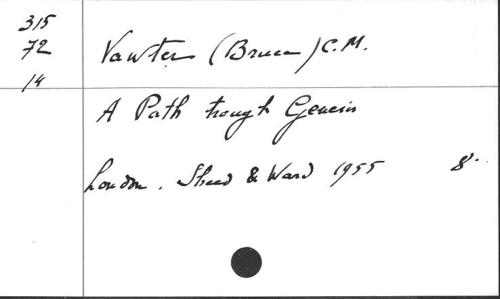 315
72
14
Vawter (Bruce) C.M.
A Path trough Genesis
London. Sheed & Ward 1955 8°